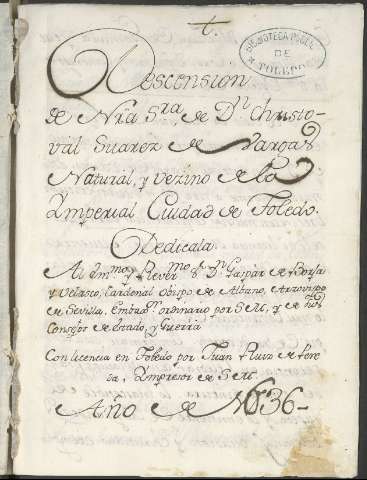 BIBLIOTECA PUBL.
DE
TOLEDO
Descension
de Nrã Srã, de Dn Christo-
val Suarez de Vargas
Natural, y vezino de la
Ymperial Ciudad de Toledo.
Dedicala.
Al Ymmo y Reverrmo Sr Dn Gaspar de Borja
y Velasco, Cardenal Obispo de Albano, Arzovispo
de Sevilla, Embador ordinario por S M, y de sus
Consejos de Estado, y Guerra
Con licencia en Toledo por Juan Ruiz de Pere
da, Ympresor de S M.
Año de 1636-